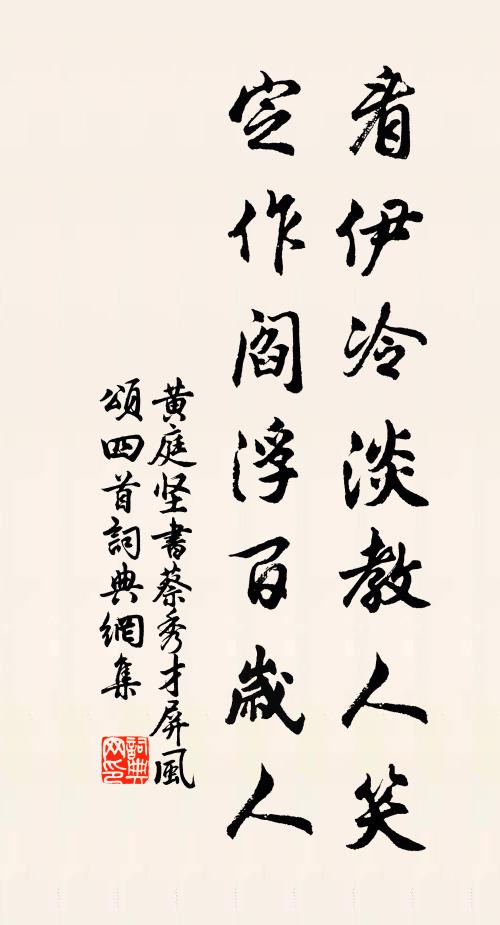 看伊冷淡教人笑
定作阎浮百歲人
黄庭坚書蔡秀才屏風
頌四首詞典網集
詞典
网印